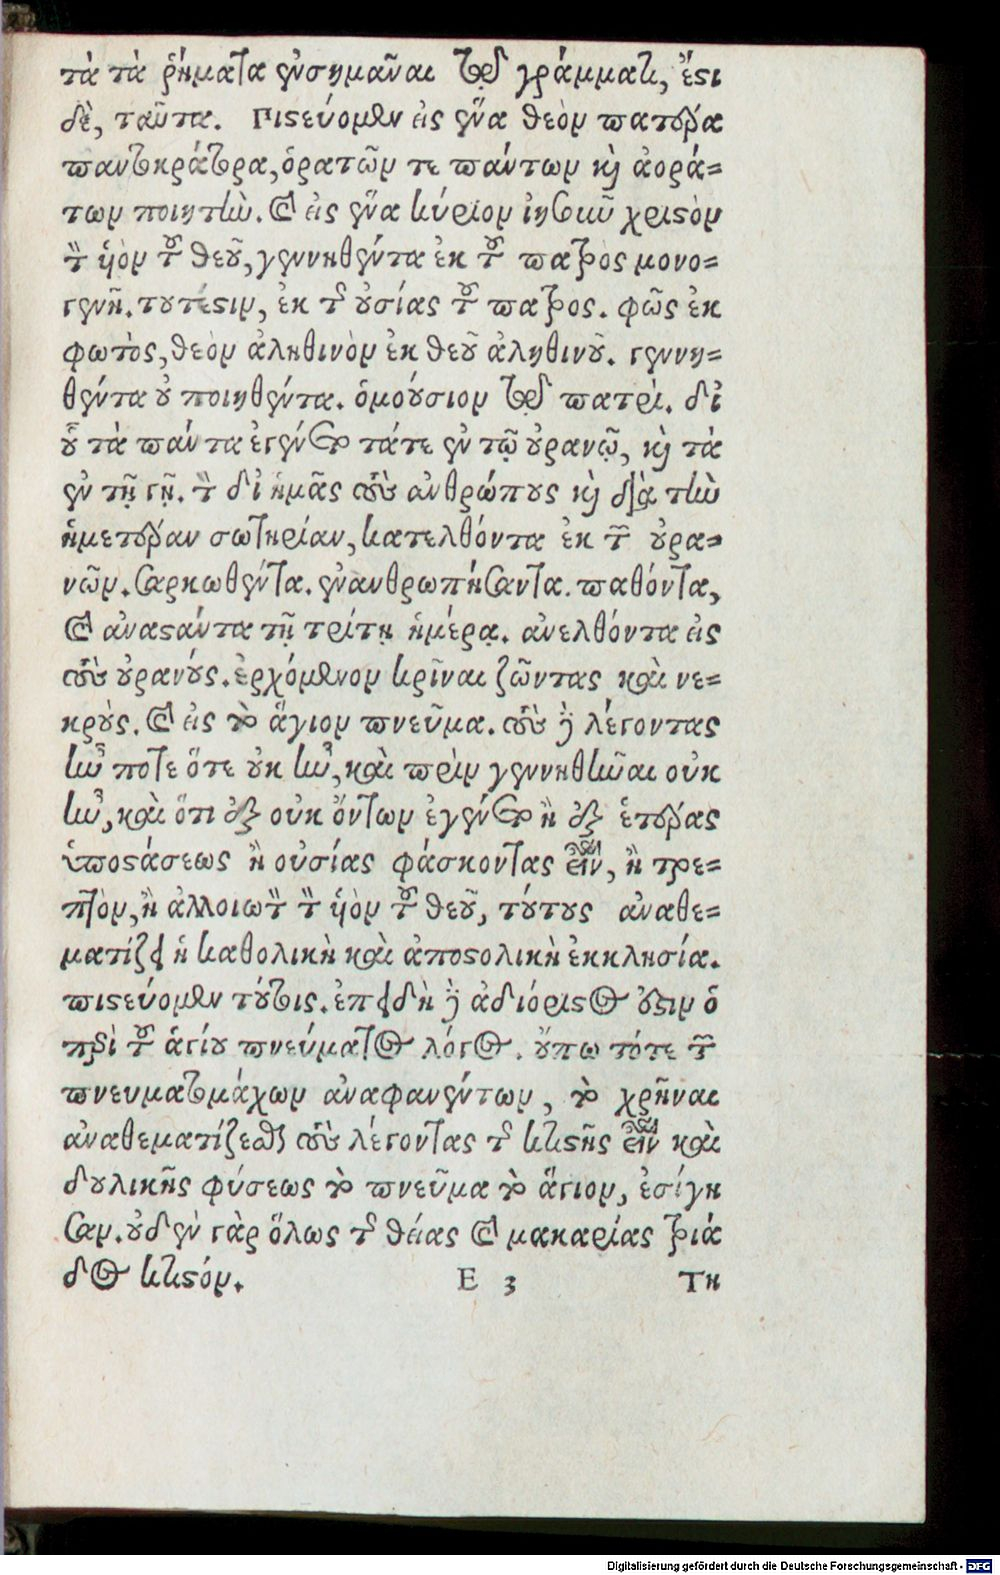 τὰ τὰ ῥήματα ἐνσημᾶναι τῷ γράμματι, ἔστι
δὲ, ταῦτα. Πιστεύομεν εἰς ἕνα θεὸν πατέρα
παντοκράτορα, ὁρατῶν τε πάντων καὶ ἀορά=
των ποιητὴν. καὶ εἰς ἕνα κύριον ἰησοῦν χριστὸν
τὸν υἱὸν τοῦ θεοῦ, γεννηθέντα ἐκ τοῦ πατρὸς μονο=
γενῆ. τουτέστιν, ἐκ τῆς οὐσίας τοῦ πατρος. φῶς ἐκ
φωτὸς, θεὸν ἀληθινὸν ἐκ θεοῦ ἀληθινοῦ. γεννη=
θέντα οὐ ποιηθέντα. ὁμοούσιον τῷ πατρὶ. δι
οὗ τὰ πάντα ἐγένετο τάτε ἐν τῷ οὐρανῷ, καὶ τὰ
ἐν τῇ γῇ. τὸν δι ἡμᾶς τοὺς ἀνθρώπους καὶ διὰ τὴν
ἡμετέραν σωτηρίαν, κατελθόντα ἐκ τῶν οὐρα=
νῶν. σαρκωθέντα. ἐνανθρωπήσαντα. παθόντα,
καὶ ἀναστάντα τῇ τρίτῃ ἡμέρᾳ. ἀνελθόντα εἰς
τοὺς οὐρανούς. ἐρχόμενον κρῖναι ζῶντας καὶ νε=
κροὺς. καὶ εἰς τὸ ἅγιον πνεῦμα. τοὺς δὲ λέγοντας
ἦν ποτε ὅτε οὐκ ἦν, καὶ πρὶν γεννηθῆναι οὐκ
ἦν, καὶ ὅτι ἐξ οὐκ ὄντων ἐγένετο ἢ ἐξ ἑτέρας
ὑποστάσεως ἢ οὐσίας φάσκοντας εἶναι, ἢ τρε=
πτὸν, ἢ ἀλλοιωτὸν τὸν υἱὸν τοῦ θεοῦ, τούτους ἀναθε=
ματίζει ἡ καθολικὴ καὶ ἀποστολικὴ ἐκκλησία.
πιστεύομεν τούτοις. ἐπειδὴ δὲ ἀδιόριστος οὗτιν ὁ
περὶ τοῦ ἁγίου πνεύματος λόγος. οὔπω τότε τῶν
πνευματομάχων ἀναφανέντων, τὸ χρῆναι
ἀναθεματίζεσθαι τοὺς λέγοντας τῆς κτιστῆς εἶναι καὶ
δουλικῆς φύσεως τὸ πνεῦμα τὸ ἅγιον, ἐσίγη
σαν. οὐδὲν γὰρ ὅλως τῆς θείας καὶ μακαρίας τριά
δος κτιστόν.
E 3 Τη
Digitalisierung gefördert durch die Deutsche Forschungsgemeinschaft - DFG